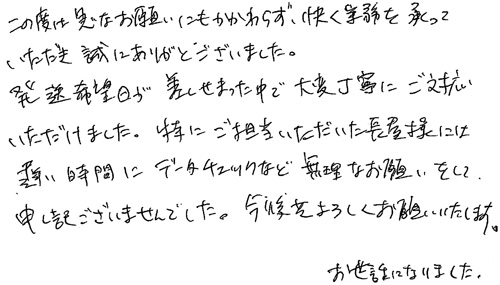 この度は急なお願いにもかかわらず、快く業務を承って
いただき誠にありがとございました。
発送希望日が差しせまった中で大変丁寧にご対応
いただけました。特にご担当いただいた長屋様には
遅い時間にデータチェックなど無理なお願いをして
申し訳ございませんでした。今後共よろしくお願いいたします。
お世話になりました。